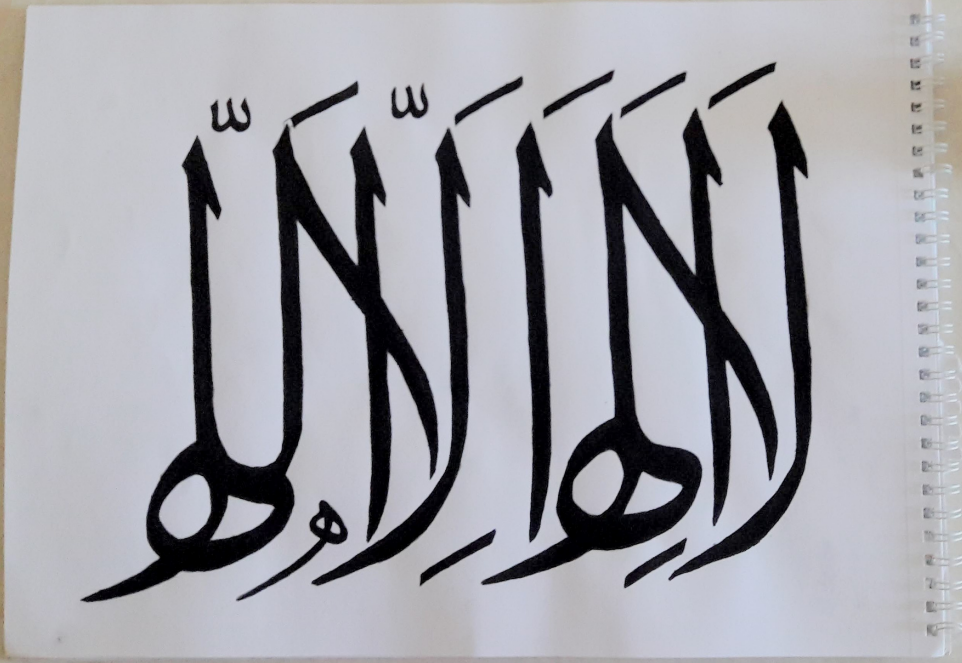 لَا إِلَٰهَ إِلَّا اللّٰه